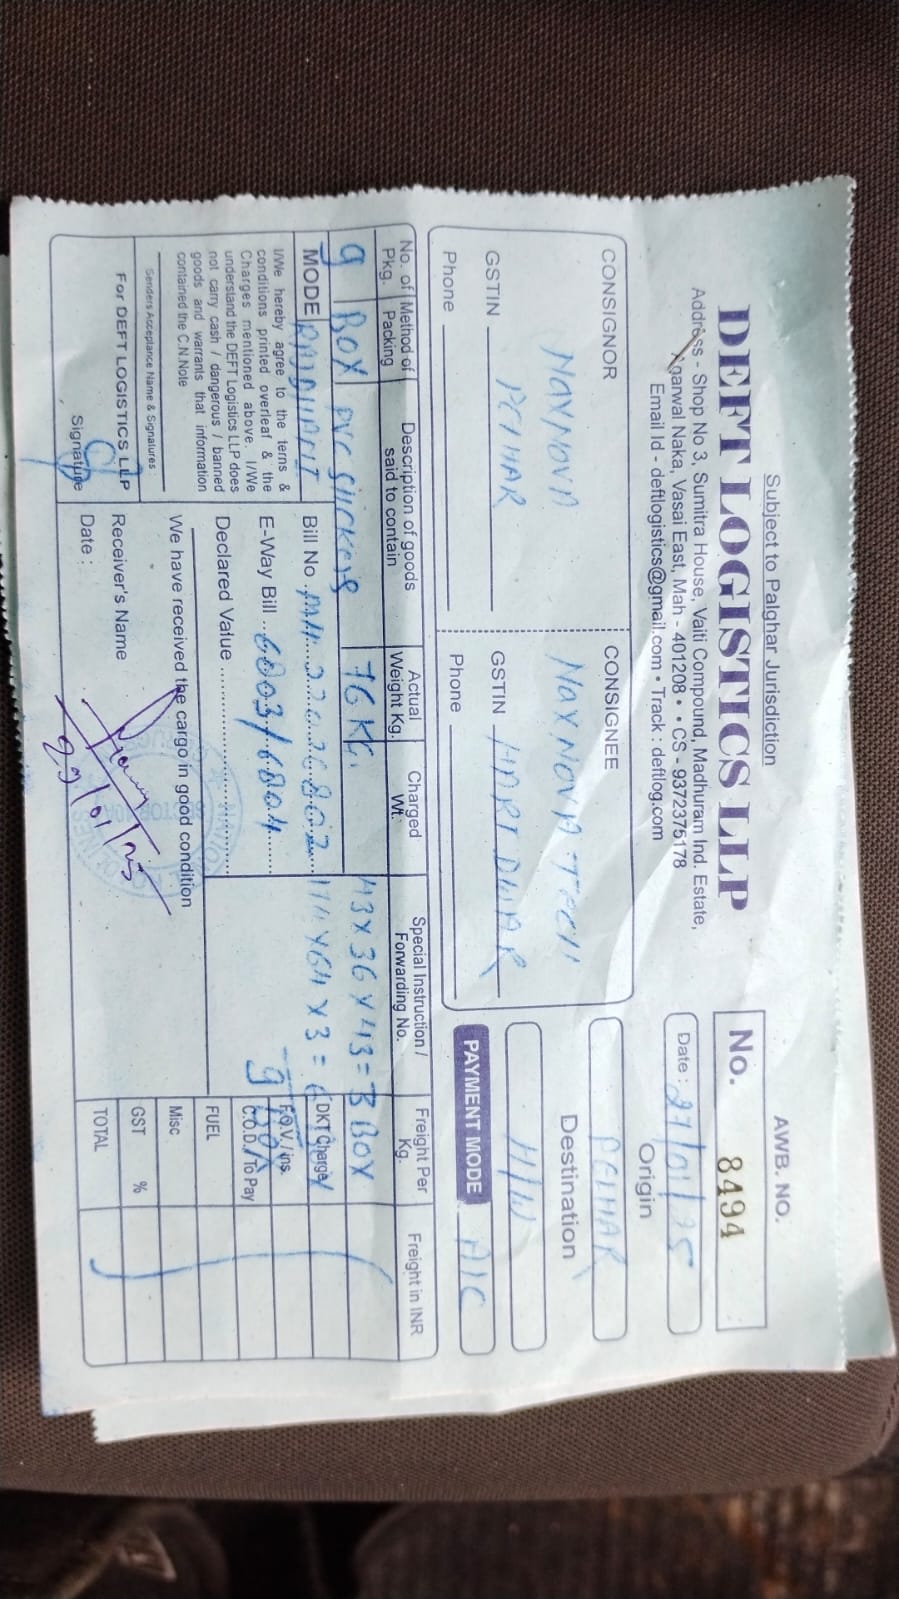 Subject to Palghar Jurisdiction
DEFT LOGISTICS LLP
Address - Shop No 3, Sumitra House, Vaiti Compound, Madhuram Ind. Estate,
Agarwal Naka, Vasai East, Mah - 401208 • • CS - 9372375178
Email Id - deftlogistics@gmail.com • Track : deftlog.com
AWB. NO.
No. 8494
Date : 27/01/25
Origin
PELHAR
Destination
H/W
PAYMENT MODE A/C
CONSIGNOR
MAXNOVA
PELHAR
GSTIN
Phone
CONSIGNEE
MAXNOVA TECH
GSTIN HARIDWAR
Phone
No. of Pkg. Method of Packing Description of goods said to contain Actual Weight Kg. Charged Wt. Special Instruction / Forwarding No. Freight Per Kg. Freight in INR
9 BOX PVC Stickers 76 KG. 43X36X43=3 BOX
MODE
Bill No
E-Way Bill 6803/6804
Declared Value
I/We hereby agree to the terns &
conditions printed overleaf & the
Charges mentioned above. I/We
understand the DEFT Logistics LLP does
not carry cash / dangerous / banned
goods and warrants that information
contained the C.N.Note
Senders Acceptance Name & Signatures
For DEFT LOGISTICS LLP
Signature
We have received the cargo in good condition
Receiver's Name
Date :
29/01/25
9 BOX
DKT Charge
F.O.V. / ins.
C.O.D. / To Pay
FUEL
Misc
GST %
TOTAL